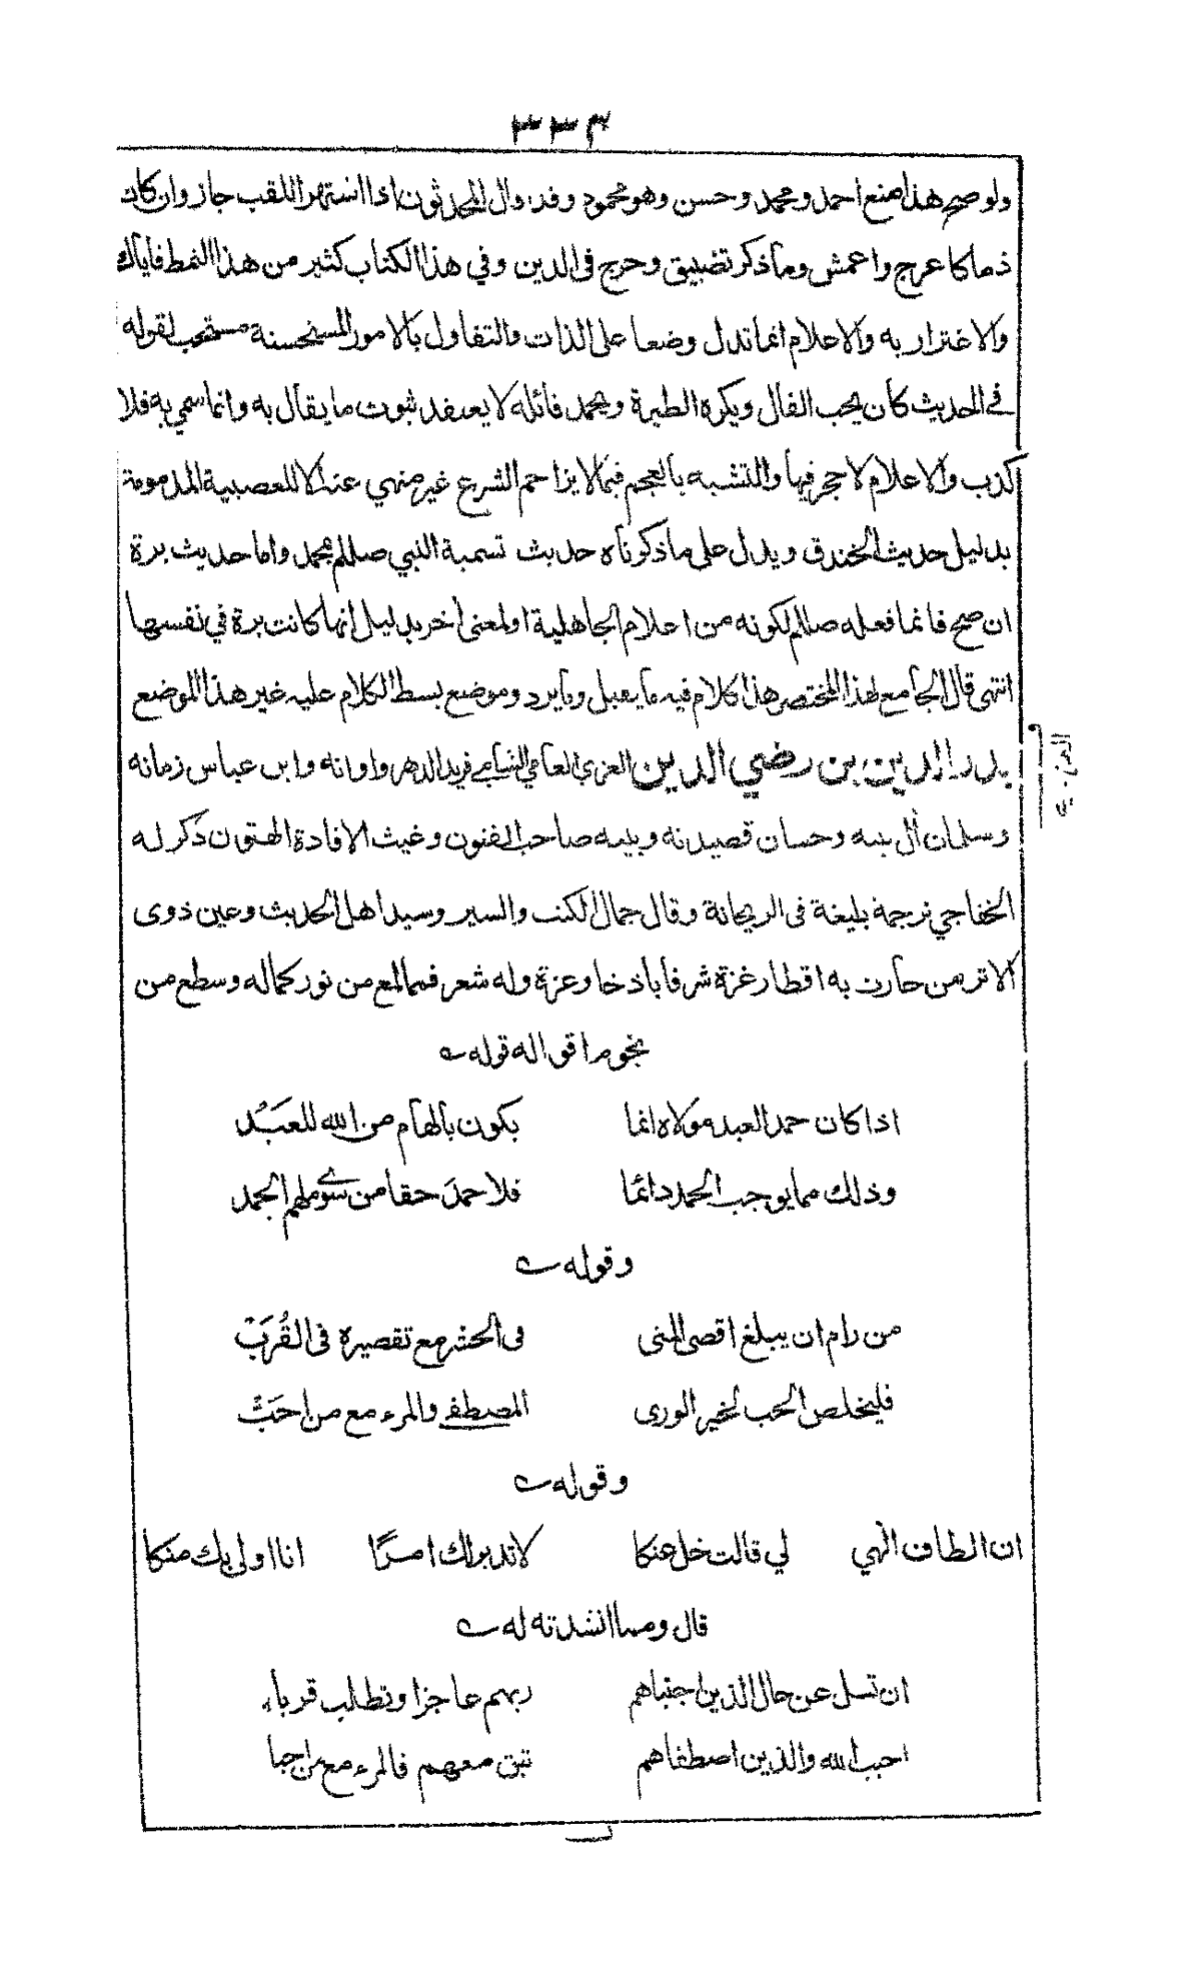 ٣٣٤
ولو صح هذا منع احمد ومحمد وحسن وهو محمود وقد قال المحدثون اذا اشتهر اللقب جاز وان كان
ذما كاعرج واعمش وما ذكر تضييق وحرج فى الدين وفي هذا الكتاب كثير من هذا النمط فاياك
والاغترار به والاعلام انما تدل وضعا على الذات والتفاول بالامور المستحسنة مستحب لقوله
في الحديث كان يحب الفال ويكره الطيرة ومحمد قائله لا يعتقد ثبوت ما يقال به وانما سمي به فلا
كذب والاعلام لا حجر فيها والتشبه بالعجم فيما لا يزاحم الشرع غير منهي عنه الا للعصبية المذمومة
بدليل حديث الخندق ويدل على ما ذكرناه حديث تسمية النبي صللم محمد واما حديث برة
ان صح فانما فعله صللم لكونه من اعلام الجاهلية او لمعنى آخر بدليل انها كانت برة في نفسها
انتهى قال الجامع لهذا المختصر هذا كلام فيه ما يقبل وما يرد وموضع بسط الكلام عليه غير هذا الموضع
بدر الدين بن رضي الدين الغزي العامري الشامي فريد الدهر واوانه وابن عباس زمانه
وسلمان آل بيته وحسان قصيدته وبيته صاحب الفنون وغيث الافادة الهتون ذكر له
الخفاجي ترجمة بليغة فى الريحانة وقال جمال الكتب والسير وسيد اهل الحديث وعين ذوى
الاثر من حازت به اقطار غزة شرفا باذخا وعزة وله شعر فمما لمع من نور كماله وسطع من
نجوم اقواله قوله
اذا كان حمد العبد مولاه انما يكون بالهام من الله للعَبْد
وذلك مما يوجب الحمد دائما فلا حمدَ حقا من سوى ملهم الحمد
وقوله
من رام ان يبلغ اقصى المنى فى الحشر مع تقصيره فى القُرَبْ
فليخلص الحب لخير الورى المصطفى والمرء مع من احَبّْ
وقوله
ان الطاف الهي لي قالت خل عنكا لا تدبر لك امرًا انا اولى بك منكا
قال ومما انشدته له
ان تسل عن حال الذين اجتباهم ربهم عاجزا وتطلب قرباء
احبب الله والذين اصطفاهم تبق معهم فالمرء مع من احبا